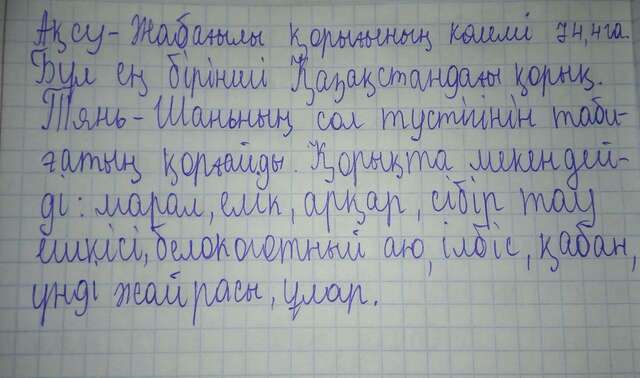 Ақсу-Жабағылы қорығының көлемі 74,4га
Бұл ең бірінші Қазақстандағы қорық.
Тянь-Шаньның сол түстігінін таби-
ғатын қорғайды. Қорықта мекендей-
ді: марал, елік, арқар, сібір тау
ешкісі, белокоготный аю, ілбіс, қабан,
үнді жайрасы, ұлар.